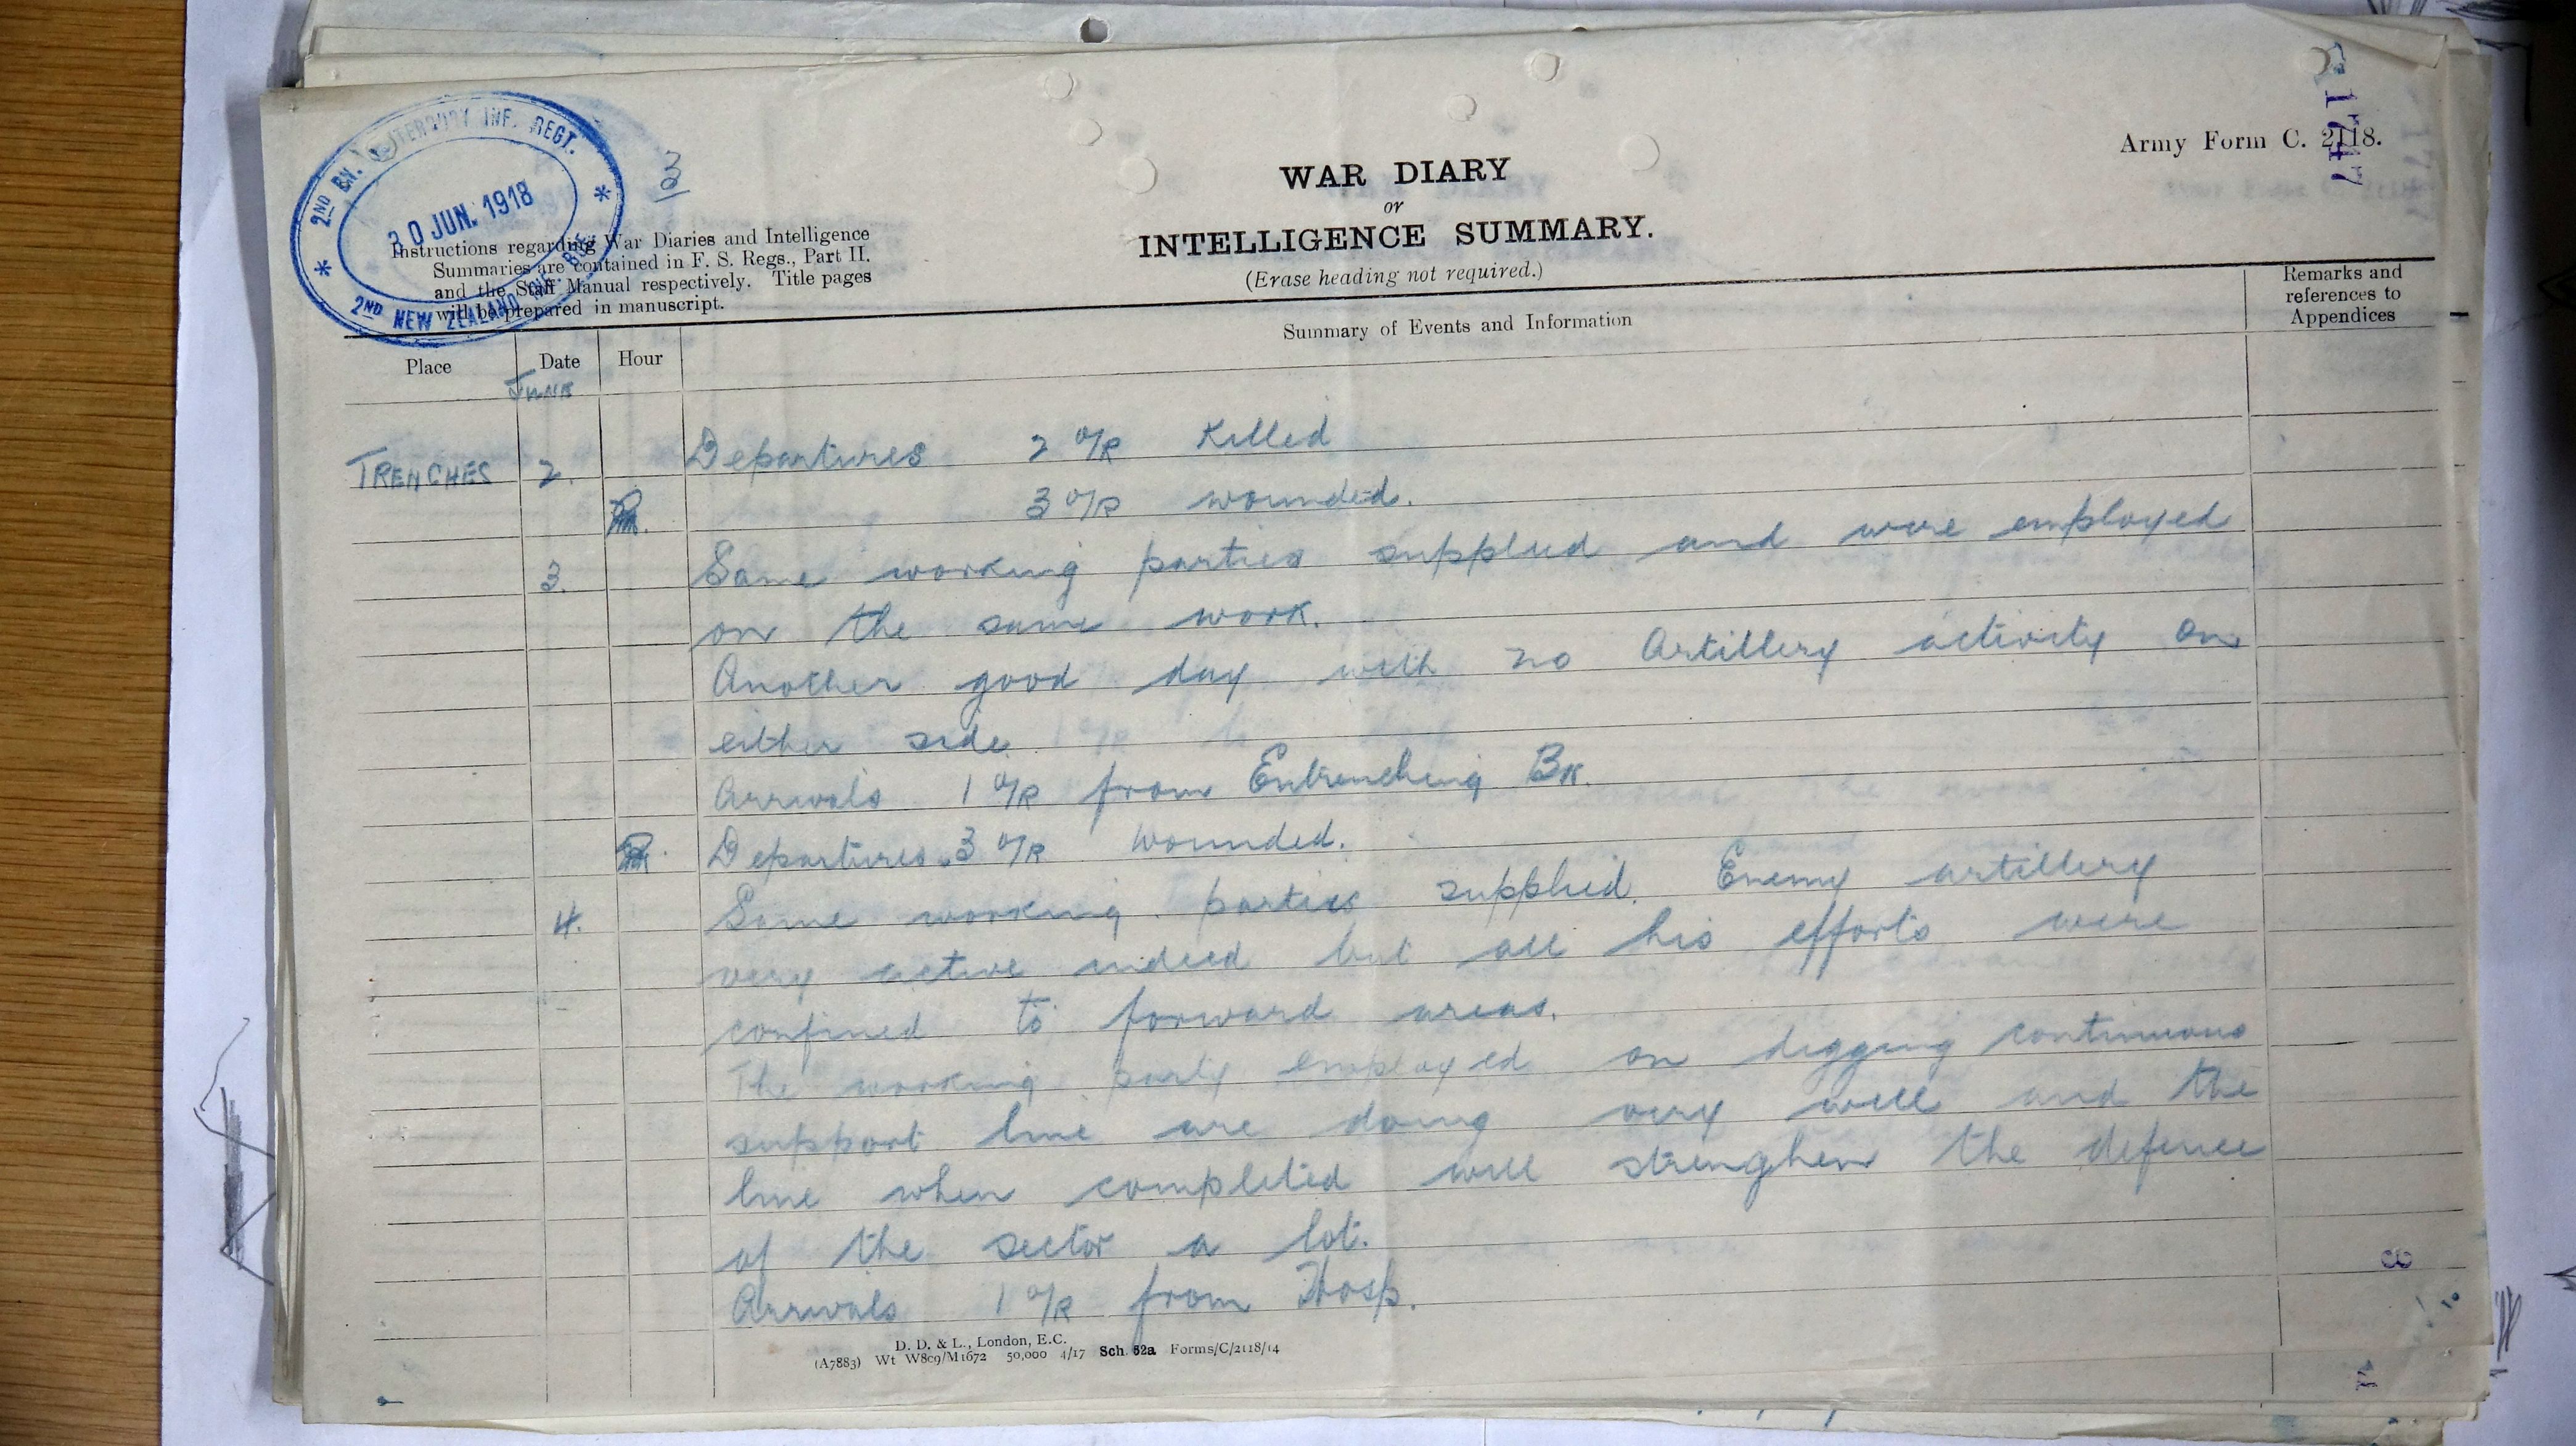 2ND BN. CANTERBURY INF. REGT.
30 JUN. 1918
2ND NEW ZEALAND INF. BDE.
3
Army Form C. 2118.
1747
WAR DIARY
or
INTELLIGENCE SUMMARY.
(Erase heading not required.)
Instructions regarding War Diaries and Intelligence
Summaries are contained in F. S. Regs., Part II.
and the Staff Manual respectively. Title pages
will be prepared in manuscript.
Place Date Hour Summary of Events and Information Remarks and references to Appendices
June
TRENCHES 2. Departures 2 O/R Killed
3 O/R wounded.
3. Same working parties supplied and were employed
on the same work.
Another good day with no Artillery activity on
either side
Arrivals 1 O/R from Entrenching Bn.
Departures. 3 O/R wounded.
4. Same working parties supplied. Enemy artillery
very active indeed but all his efforts were
confined to forward areas.
The working party employed on digging continuous
support line are doing very well and the
line when completed will strenghen the defence
of the sector a lot.
Arrivals 1 O/R from Hosp.
D. D. & L., London, E.C.
(A7883) Wt W809/M1672 50,000 4/17 Sch. 52a Forms/C/2118/14